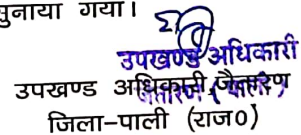 सुनाया गया।
उपखण्ड अधिकारी
उपखण्ड अधिकारी, जैतारण
जिला-पाली (राज०)